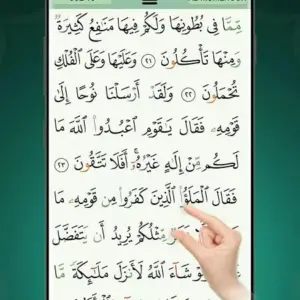 مِّمَّا فِى بُطُونِهَا وَلَكُمْ فِيهَا مَنَٰفِعُ كَثِيرَةٌ
وَمِنْهَا تَأْكُلُونَ ٢١ وَعَلَيْهَا وَعَلَى ٱلْفُلْكِ
تُحْمَلُونَ ٢٢ وَلَقَدْ أَرْسَلْنَا نُوحًا إِلَىٰ
قَوْمِهِۦ فَقَالَ يَٰقَوْمِ ٱعْبُدُوا۟ ٱللَّهَ مَا
لَكُم مِّنْ إِلَٰهٍ غَيْرُهُۥٓ ۖ أَفَلَا تَتَّقُونَ ٢٣
فَقَالَ ٱلْمَلَؤُا۟ ٱلَّذِينَ كَفَرُوا۟ مِن قَوْمِهِۦ مَا
مِّثْلُكُمْ يُرِيدُ أَن يَتَفَضَّلَ
شَآءَ ٱللَّهُ لَأَنزَلَ مَلَٰٓئِكَةً مَّا